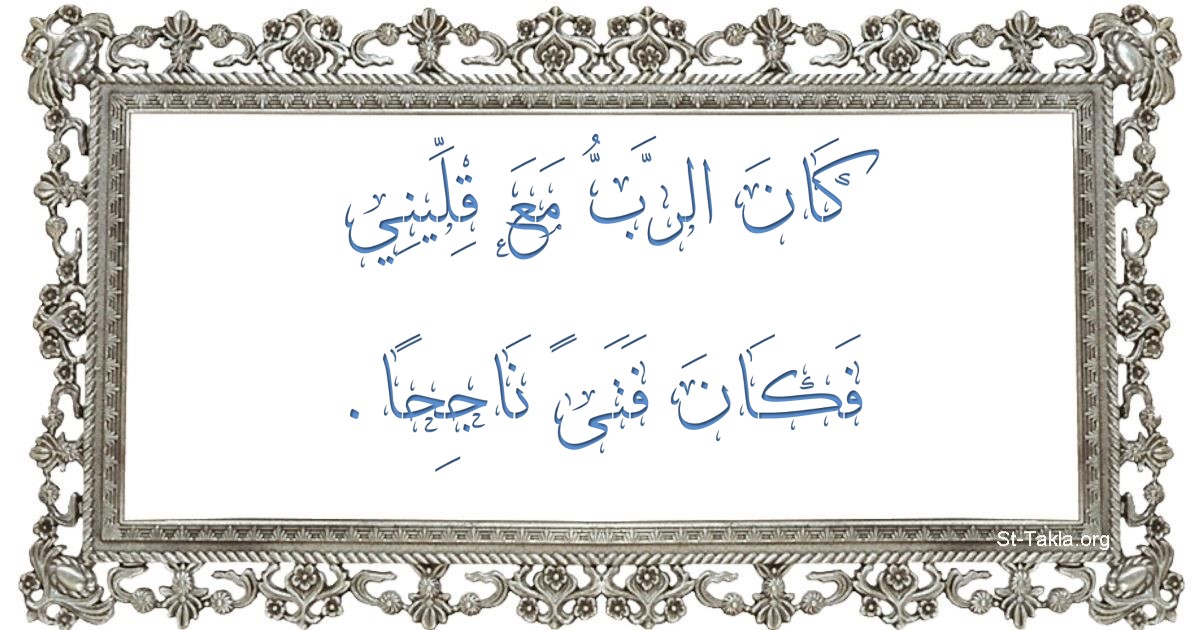 كَانَ الرَّبُّ مَعَ قِلِّينِي
فَكَانَ فَتَىً نَاجِحًا .
St-Takla.org